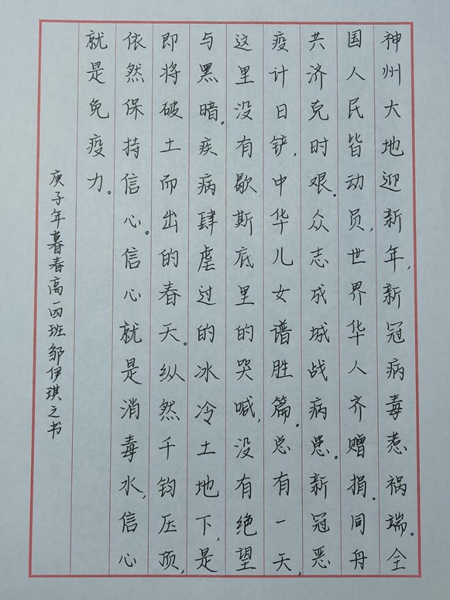 神州大地迎新年,新冠病毒惹祸端。全
国人民皆动员,世界华人齐赠捐。同舟
共济克时艰。众志成城战病患。新冠恶
疫计日铲,中华儿女谱胜篇。总有一天,
这里没有歇斯底里的哭喊,没有绝望
与黑暗。疾病肆虐过的冰冷土地下,是
即将破土而出的春天。纵然千钧压顶,
依然保持信心。信心就是消毒水,信心
就是免疫力。
庚子年暮春高一四班邹伊琪之书